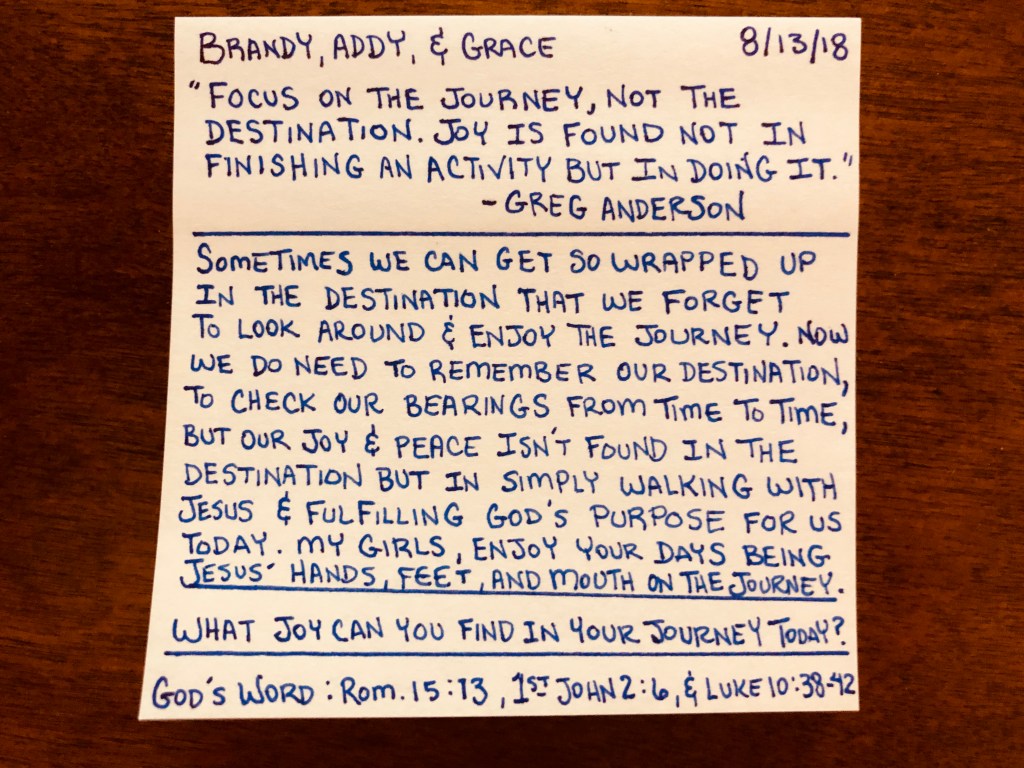 BRANDY, ADDY, & GRACE 8/13/18
"FOCUS ON THE JOURNEY, NOT THE
DESTINATION. JOY IS FOUND NOT IN
FINISHING AN ACTIVITY BUT IN DOING IT."
-GREG ANDERSON
SOMETIMES WE CAN GET SO WRAPPED UP
IN THE DESTINATION THAT WE FORGET
TO LOOK AROUND & ENJOY THE JOURNEY. NOW
WE DO NEED TO REMEMBER OUR DESTINATION,
TO CHECK OUR BEARINGS FROM TIME TO TIME,
BUT OUR JOY & PEACE ISN'T FOUND IN THE
DESTINATION BUT IN SIMPLY WALKING WITH
JESUS & FULFILLING GOD'S PURPOSE FOR US
TODAY. MY GIRLS, ENJOY YOUR DAYS BEING
JESUS' HANDS, FEET, AND MOUTH ON THE JOURNEY.
WHAT JOY CAN YOU FIND IN YOUR JOURNEY TODAY?
GOD'S WORD: ROM. 15:13, 1ST JOHN 2:6, & LUKE 10:38-42